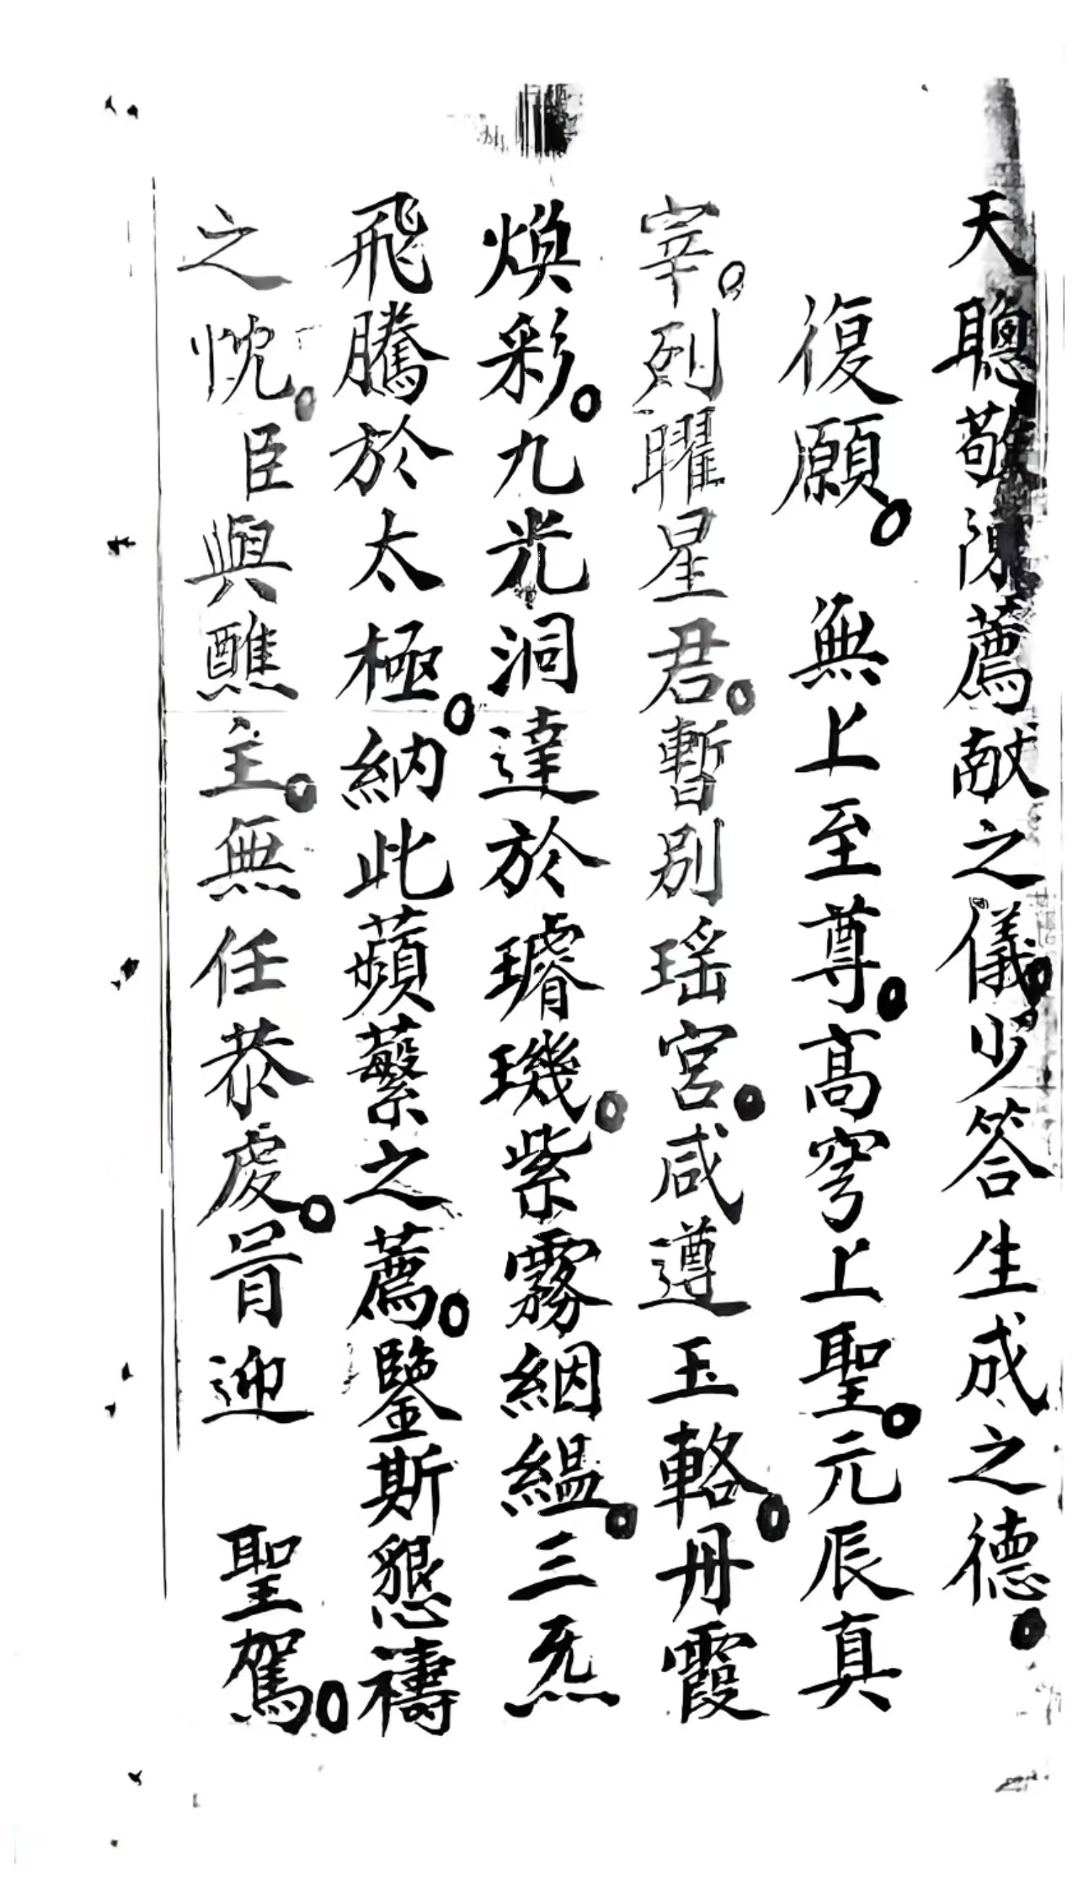 天聰敬陳薦献之儀。少答生成之德。
復願。 無上至尊。高穹上聖。元辰真
宰。列曜星君。暫別瑶宮。咸遵玉輅。丹霞
煥彩。九光洞達於璿璣。紫霧絪縕。三炁
飛騰於太極。納此蘋蘩之薦。鑒斯懇禱
之忱。臣與醮主。無任恭虔。肯迎 聖駕。